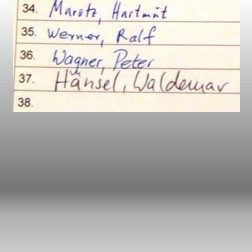 34. Marotz, Hartmut
35. Werner, Ralf
36. Wagner, Peter
37. Hänsel, Waldemar
38.